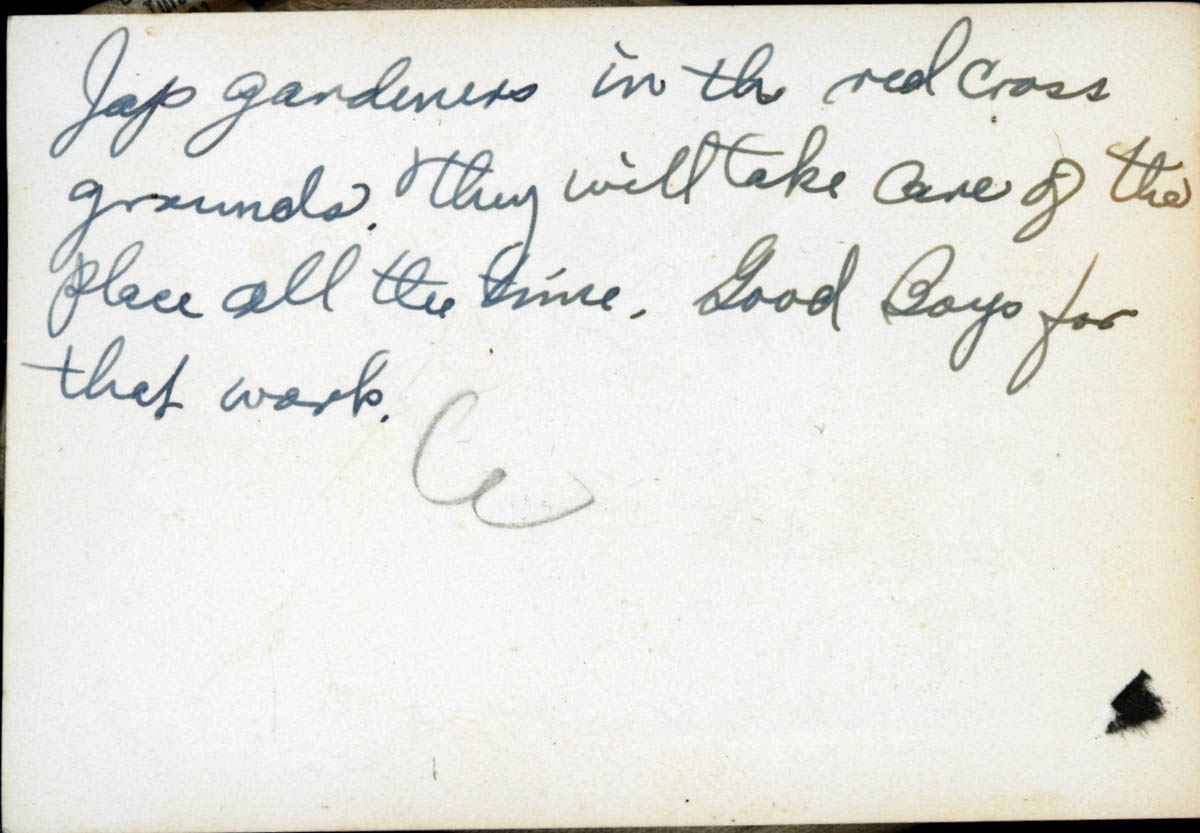 Jap gardeners in th red Cross
grounds. They will take Care of the
place all the time. Good Boys for
that work.